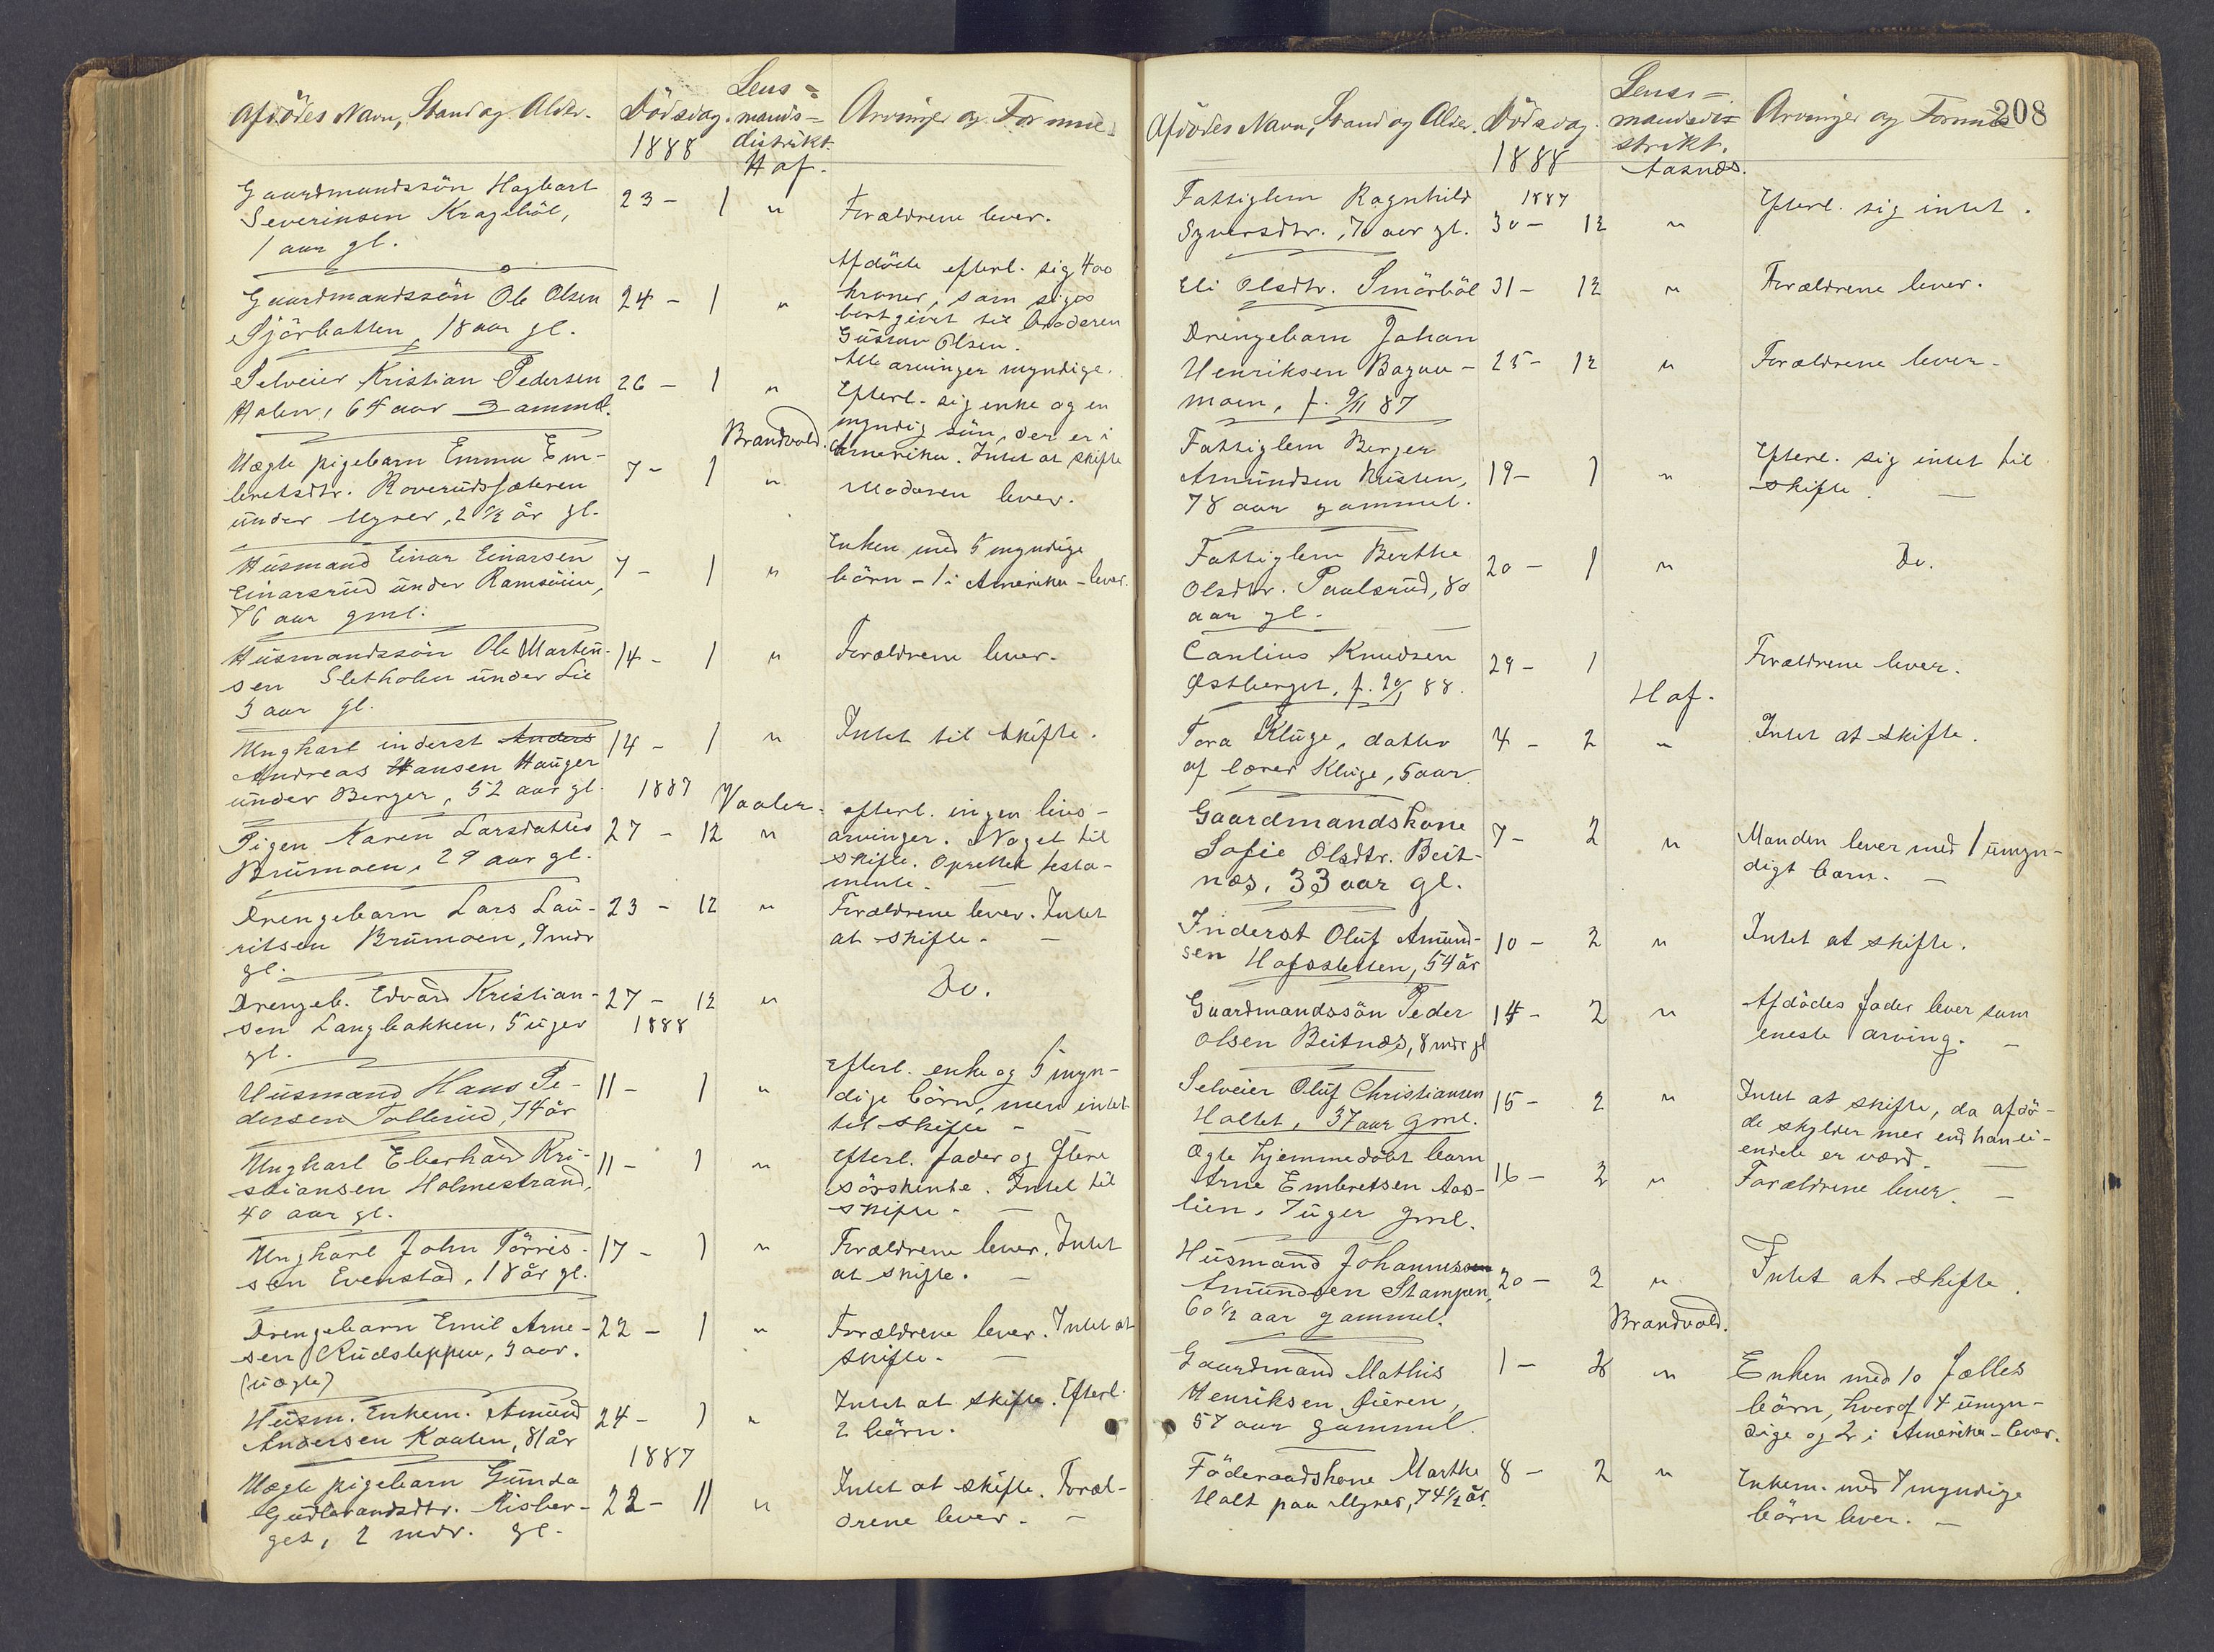 Afdödes Navn, Stand og Alder. Dödsdag. Lens=
mands=
distrikt. Arvinger og Formue.
1888
Hof.
Gaardmandssön Hagbart 23 - 1 " Forældrene lever.
Severinsen Krageböl,
1 aar gl.
Gaardmandssön Ole Olsen 24 - 1 " Afdöde efterl. sig 400
Sjörbatten, 18 aar gl. kroner, som siges
bortgivet til broderen
Gustav Olsen.
Alle arvinger myndige.
Selveier Kristian Pedersen 26 - 1 " Efterl. sig enke og en
Holen, 64 aar gammel. myndig sön, der er i
Amerika. Intet at skifte
Brandvold.
Uægte pigebarn Emma Em- 7 - 1 " Moderen lever.
bretsdtr. Roverudsæteren
under Myrer, 2 1/2 år gl.
Husmand Einar Einarsen 7 - 1 " Enken med 5 myndige
Einarsrud under börn - 1 i Amerika - lever.
76 aar gml.
Husmandssön Ole Martin- 14 - 1 " Forældrene lever.
sen Sletholen under Lie
3 aar gl.
Ungkarl inderst Anders 14 - 1 " Intet til skifte.
Andreas Hansen Hauger
under Berger, 52 aar gl.
1887 Vaaler.
Pigen Karen Larsdatter 27 - 12 " efterl. ingen livs-
Brumoen, 29 aar gl. arvinger. Noget til
skifte. Oprettet testa-
mente. -
Drengebarn Lars Lau- 23 - 12 " Forældrene lever. Intet
ritsen Brumoen, 9 mdr at skifte. -
gl.
Drengeb. Edvard Kristian- 27 - 12 " Do.
sen Langbakken, 5 uger 1888
gl.
Husmand Hans Pe- 11 - 1 " Efterl. enke og 5 myn-
dersen Tollerud, 74 år dige börn, men intet
til skifte -
Ungkarl Eberhard Kri- 11 - 1 " Efterl. fader og flere
stiansen Holmestrand, söskende. Intet til
40 aar gl. skifte. -
Ungkarl John Törris- 17 - 1 " Forældrene lever. Intet
sen Evenstad, 18 år gl. at skifte. -
Drengebarn Emil Arne- 22 - 1 " Forældrene lever. Intet at
sen Rudsleppen, 3 aar. skifte. -
(uægte)
Husm. Enkem. Amund 24 - 1 " Intet at skifte. Efterl.
Andersen Kaaten, 81 år 2 börn.
1887
Uægte pigebarn Gunda 22 - 11 " Intet at skifte. Foræl-
Gudbrandsdtr. Risber- drene lever. -
get, 2 mdr. gl.
208
Afdödes Navn, Stand og Alder. Dödsdag. Lens=
mandsdi=
strikt. Arvinger og Formue
1888
Aasnes.
Fattiglem Ragnhild 1887 Efterl. sig intet.
Syversdtr., 70 aar gl. 30 - 12 "
Eli Olsdtr. Smörböl 31 - 12 " Forældrene lever.
Drengebarn Johan
Henriksen Bagaa- 25 - 12 " Forældrene lever.
moen, f. 9/11 87
Fattiglem Berger
Amundsen Kusten, 19 - 1 " Efterl. sig intet til
78 aar gammel. skifte. -
Fattiglem Berthe 20 - 1 " Do.
Olsdtr. Paulsrud, 80
aar gl.
Cantius Knudsen 29 - 1 Forældrene lever.
Østberget, f. 20/1 88.
Hof.
Tora Kluge, datter 4 - 2 " Intet at skifte.
af lærer Kluge, 5 aar.
Gaardmandskone 7 - 2 " Manden lever med 1 umyn-
Sofie Olsdtr. Beit- digt barn. -
næs, 33 aar gl.
Inderst Oluf Amund- 10 - 2 " Intet at skifte.
sen Hofssletten, 54 år
Gaardmandssön Peder 14 - 2 " Afdödes fader lever som
Olsen Beitnæs, 8 mdr gl eneste arving. -
Selveier Oluf Christiansen 15 - 2 " Intet at skifte, da afdö-
Holtet, 37 aar gml. de skylder mer end han ei-
endele er værd. -
Ægte hjemmedöbt barn
Arne Embretsen Aas- 16 - 2 " Forældrene lever. -
lien, 7 uger gml.
Husmand Johannessen
Amundsen Stampen, 20 - 2 " Intet at skifte.
60 1/2 aar gammel.
Brandvold.
Gaardmand Mathis 1 - 2 " Enken med 10 fælles
Henriksen Øieren, börn, hvoraf 4 umyn-
57 aar gammel. dige og 2 i Amerika - lever.
Föderaadskone Marthe 8 - 2 " Enkem. med 7 myndige
Holt paa Myrer, 74 1/2 år. börn lever. -